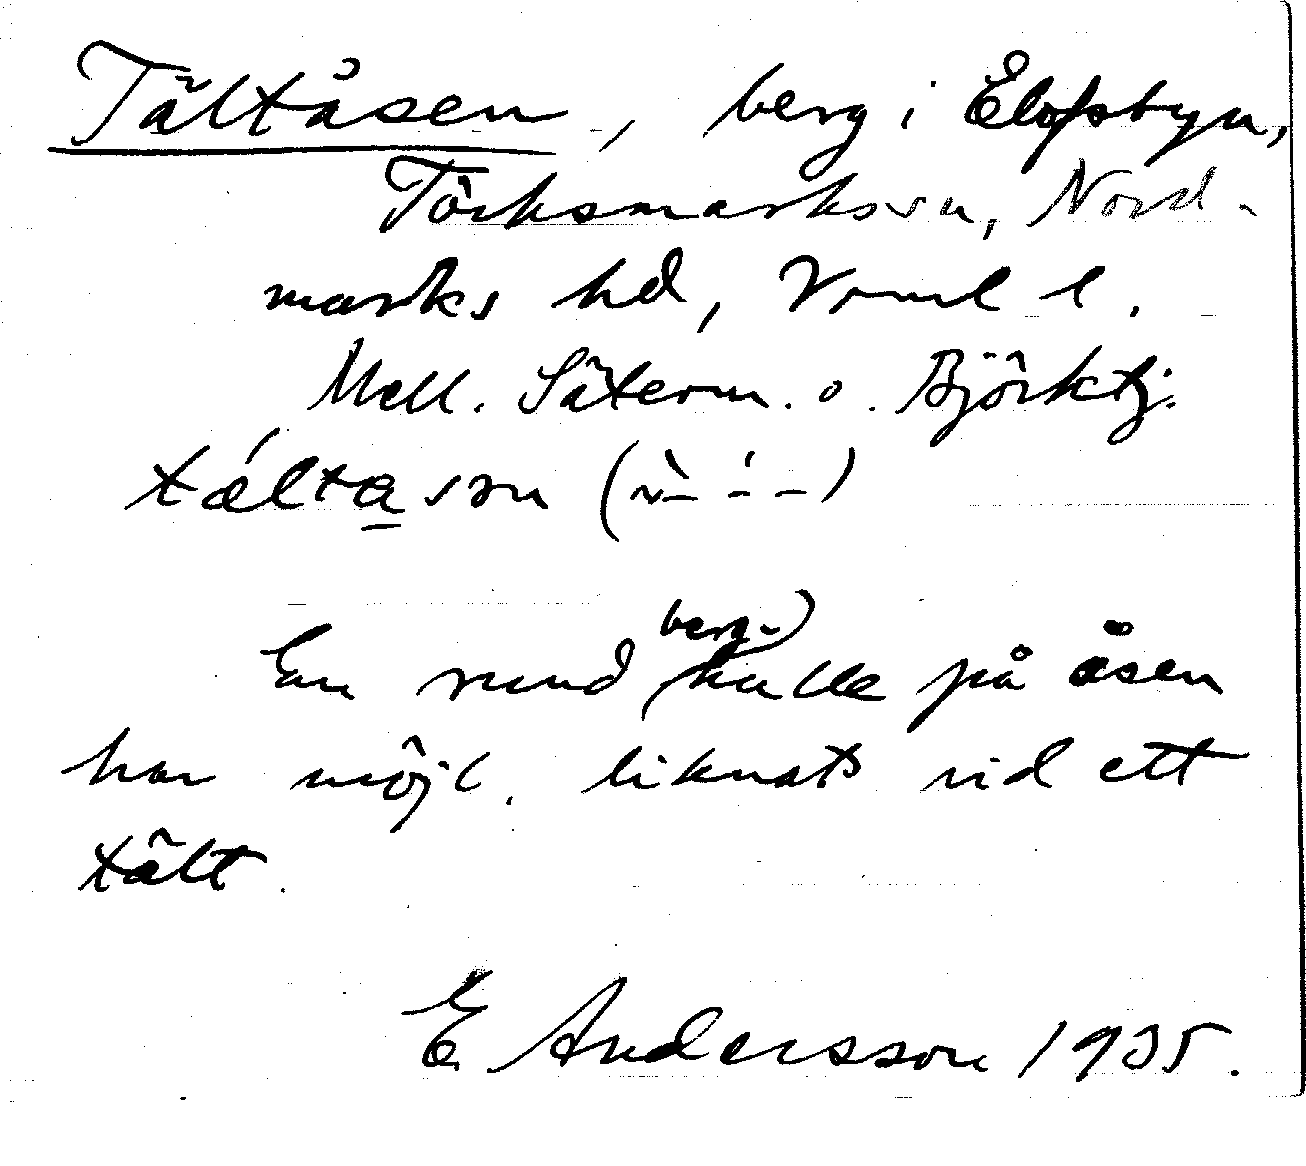 Tältåsen, berg i Elofsbyn,
Töcksmarks sn, Nord-
marks hd, Vrml l.
Mell. Säterm. o. Björktj.
En rund (berg-)kulle på åsen
har möjl. liknats vid ett
tält.
E Andersson 1935.